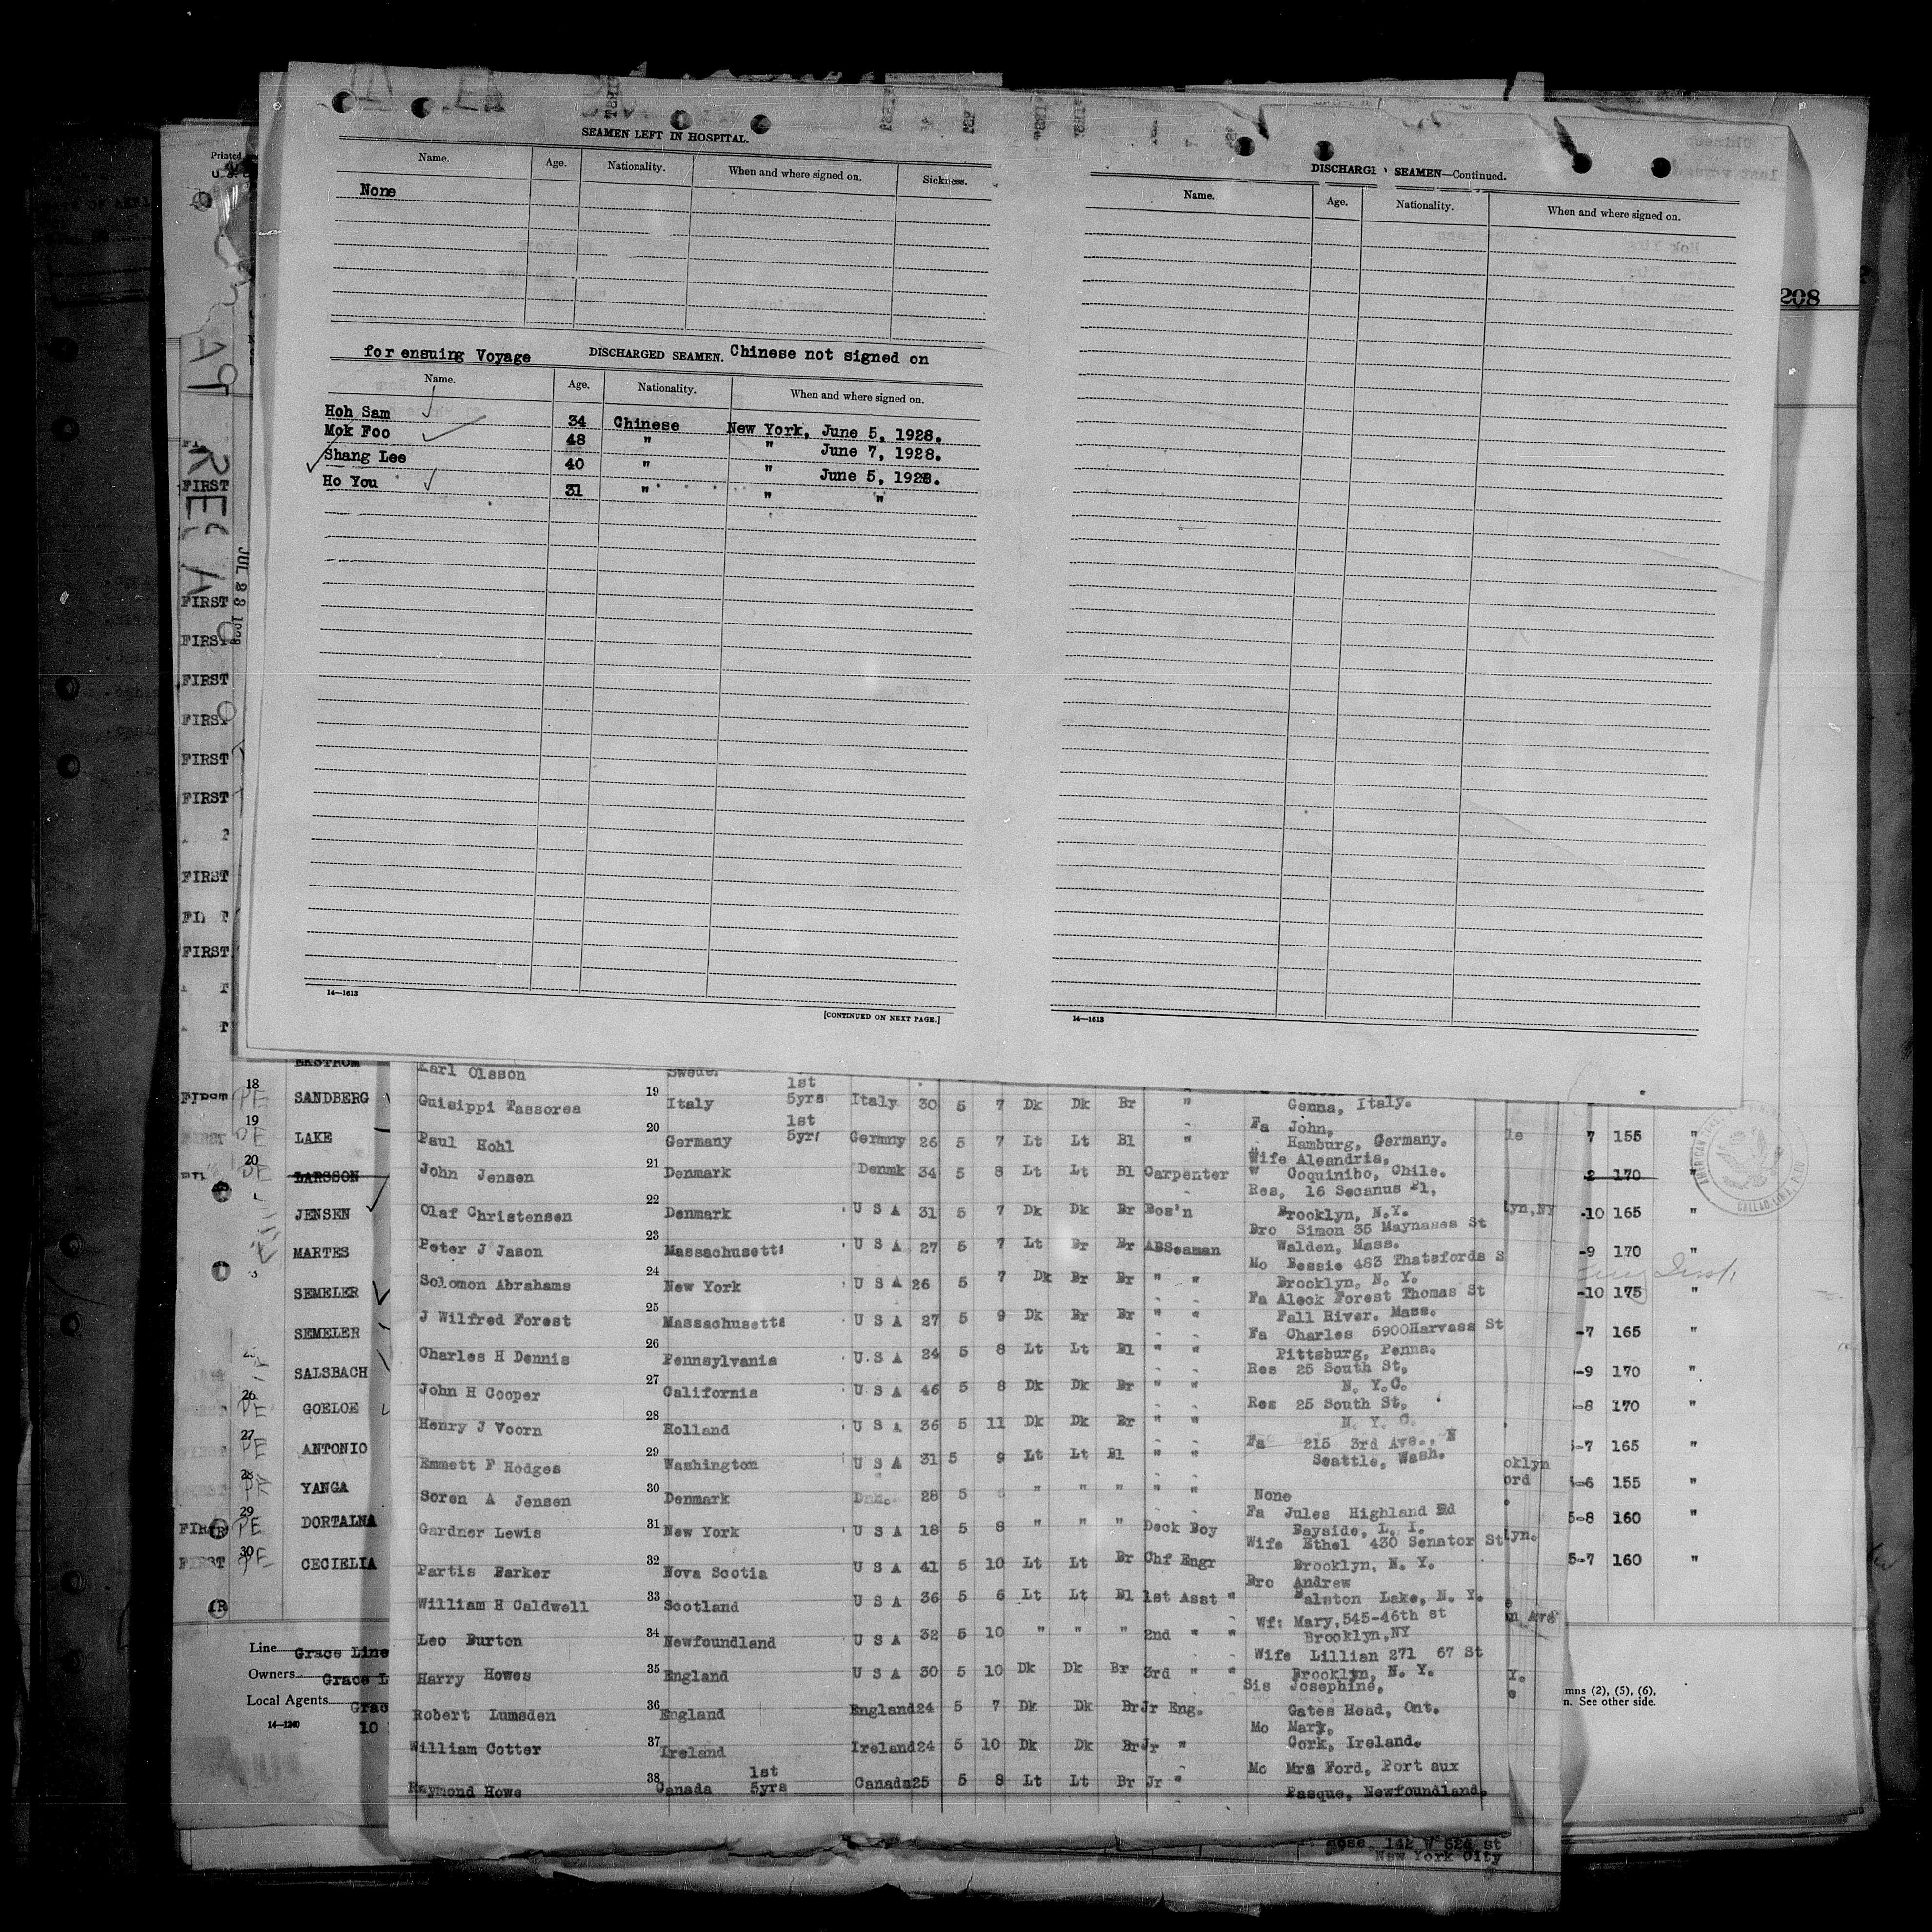 SEAMEN LEFT IN HOSPITAL.
Name. Age. Nationality. When and where signed on. Sickness.
None
for ensuing Voyage DISCHARGED SEAMEN. Chinese not signed on
Name. Age. Nationality. When and where signed on.
Hoh Sam 34 Chinese New York, June 5, 1928.
Mok Foo 48 " " June 7, 1928.
Shang Lee 40 " " June 5, 1928.
Ho You 31 " " "
14—1613
[CONTINUED ON NEXT PAGE.]
SEAMEN—Continued.
Name. Age. Nationality. When and where signed on.
14—1613
208
Printed
FIRST
FIRST
FIRST
FIRST
FIRST
FIRST
FIRST
FIRST
FIRST
EKSTROM
18 SANDBERG
19 LAKE
20 LARSSON
JENSEN
MARTES
SEMELER
SEMELER
SALSBACH
26 PE GOELOE
27 PE ANTONIO
28 YANGA
29 PE DORTALNA
30 PE CECIELIA
Line Grace Line
Owners Grace L
Local Agents Grac
14—1240 10
Karl Olsson
19 Guisippi Tassorea Italy 1st 5yrs Italy 30 5 7 Dk Dk Br " Genna, Italy.
20 Paul Hohl Germany 1st 5yr Germny 26 5 7 Lt Lt Bl " Fa John, Hamburg, Germany.
21 John Jensen Denmark Denmk 34 5 8 Lt Lt Bl Carpenter Wife Aleandria, Coquinibo, Chile.
22 Olaf Christensen Denmark U S A 31 5 7 Dk Dk Br Bos'n Res, 16 Secanus Pl, Brooklyn, N.Y.
23 Peter J Jason Massachusett U S A 27 5 7 Lt Br Br ABSeaman Bro Simon 35 Maynases St Walden, Mass.
24 Solomon Abrahams New York U S A 26 5 7 Dk Br Br " " Mo Bessie 463 Thatsfords S Brooklyn, N. Y.
25 J Wilfred Forest Massachusetts U S A 27 5 9 Dk Br Br " " Fa Aleck Forest Thomas St Fall River. Mass.
26 Charles H Dennis Pennsylvania U.S A 24 5 8 Lt Lt Bl " " Fa Charles 5900Harvass St Pittsburg, Penna.
27 John H Cooper California U S A 46 5 8 Dk Dk Br " " Res 25 South St, N. Y.C.
28 Henry J Voorn Holland U S A 36 5 11 Dk Dk Br " " Res 25 South St, N. Y. C.
29 Emmett F Hodges Washington U S A 31 5 9 Lt Lt Bl " " Fa 215 3rd Ave., N Seattle, Wash.
30 Soren A Jensen Denmark 28 5 " " " " " None
31 Gardner Lewis New York U S A 18 5 8 " " " Deck Boy Fa Jules Highland Rd Bayside, L. I.
32 Partis Parker Nova Scotia U S A 41 5 10 Lt Lt Br Chf Engr Wife Ethel 430 Senator St Brooklyn, N. Y.
33 William H Caldwell Scotland U S A 36 5 6 Lt Lt Bl 1st Asst " Bro Andrew Balston Lake, N. Y.
34 Leo Burton Newfoundland U S A 32 5 10 " " " 2nd " " Wf: Mary,545-46th st Brooklyn,NY
35 Harry Howes England U S A 30 5 10 Dk Dk Br 3rd " " Wife Lillian 271 67 St Brooklyn, N. Y.
36 Robert Lumsden England England 24 5 7 Dk Dk Br Jr Eng. Sis Josephine, Gates Head, Ont.
37 William Cotter Ireland Ireland 24 5 10 Dk Dk Br Jr " Mo Mary, Cork, Ireland.
38 Raymond Howe Canada 1st 5yrs Canada 25 5 8 Lt Lt Br Jr " Mo Mrs Ford, Port aux Pasque, Newfoundland.
7 155 "
2 170 "
lyn,NY -10 165 "
-9 170 "
-10 175 "
-7 165 "
-9 170 "
-8 170 "
-7 165 "
-6 155 "
5-8 160 "
5-7 160 "
mns (2), (5), (6),
n. See other side.
New York City